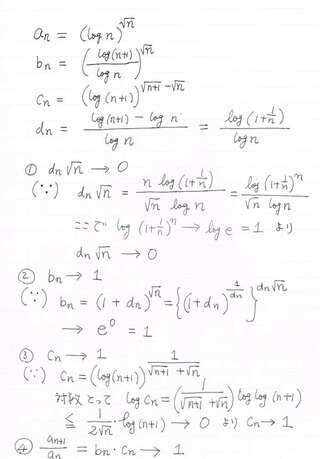 aₙ = (log n)^√n
bₙ = (log(n+1)/log n)^√n
cₙ = (log(n+1))^(√(n+1) - √n)
dₙ = (log(n+1) - log n)/log n = log(1+1/n)/log n
① dₙ√n → 0
(∵) dₙ√n = n log(1+1/n)/(√n log n) = log(1+1/n)^n/(√n log n)
ここで log(1+1/n)^n → log e = 1 より
dₙ√n → 0
② bₙ → 1
(∵) bₙ = (1+dₙ)^√n = {(1+dₙ)^(1/dₙ)}^(dₙ√n)
→ e^0 = 1
③ cₙ → 1
(∵) cₙ = (log(n+1))^(1/(√(n+1)+√n))
対数とって log cₙ = (1/(√(n+1)+√n)) log log(n+1)
≦ 1/(2√n)・log(n+1) → 0 より cₙ → 1
④ aₙ₊₁/aₙ = bₙ・cₙ → 1